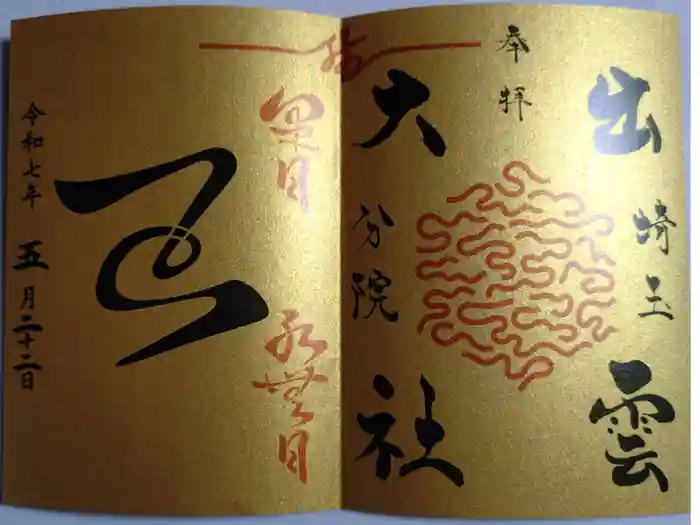 奉拝
出雲
埼玉
大社
分院
結
皐月
水無月
令和七年五月二十二日